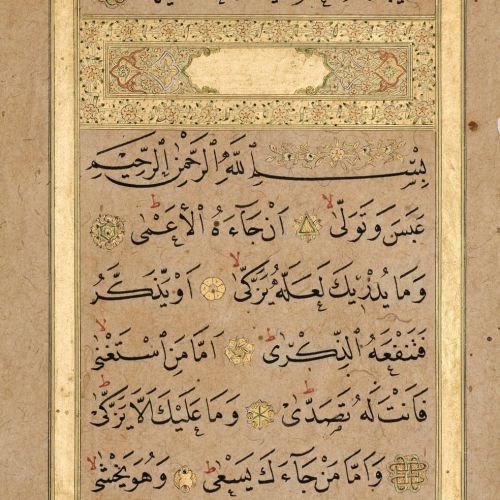 بِسْمِ اللّٰهِ الرَّحْمٰنِ الرَّحِيمِ
عَبَسَ وَتَوَلّٰى اَنْ جَاءَهُ الْاَعْمٰى
وَمَا يُدْرِيكَ لَعَلَّهُ يَزَّكّٰى اَوْ يَذَّكَّرُ
فَتَنْفَعَهُ الذِّكْرٰى اَمَّا مَنِ اسْتَغْنٰى
فَاَنْتَ لَهُ تَصَدّٰى وَمَا عَلَيْكَ اَلَّا يَزَّكّٰى
وَاَمَّا مَنْ جَاءَكَ يَسْعٰى وَهُوَ يَخْشٰى